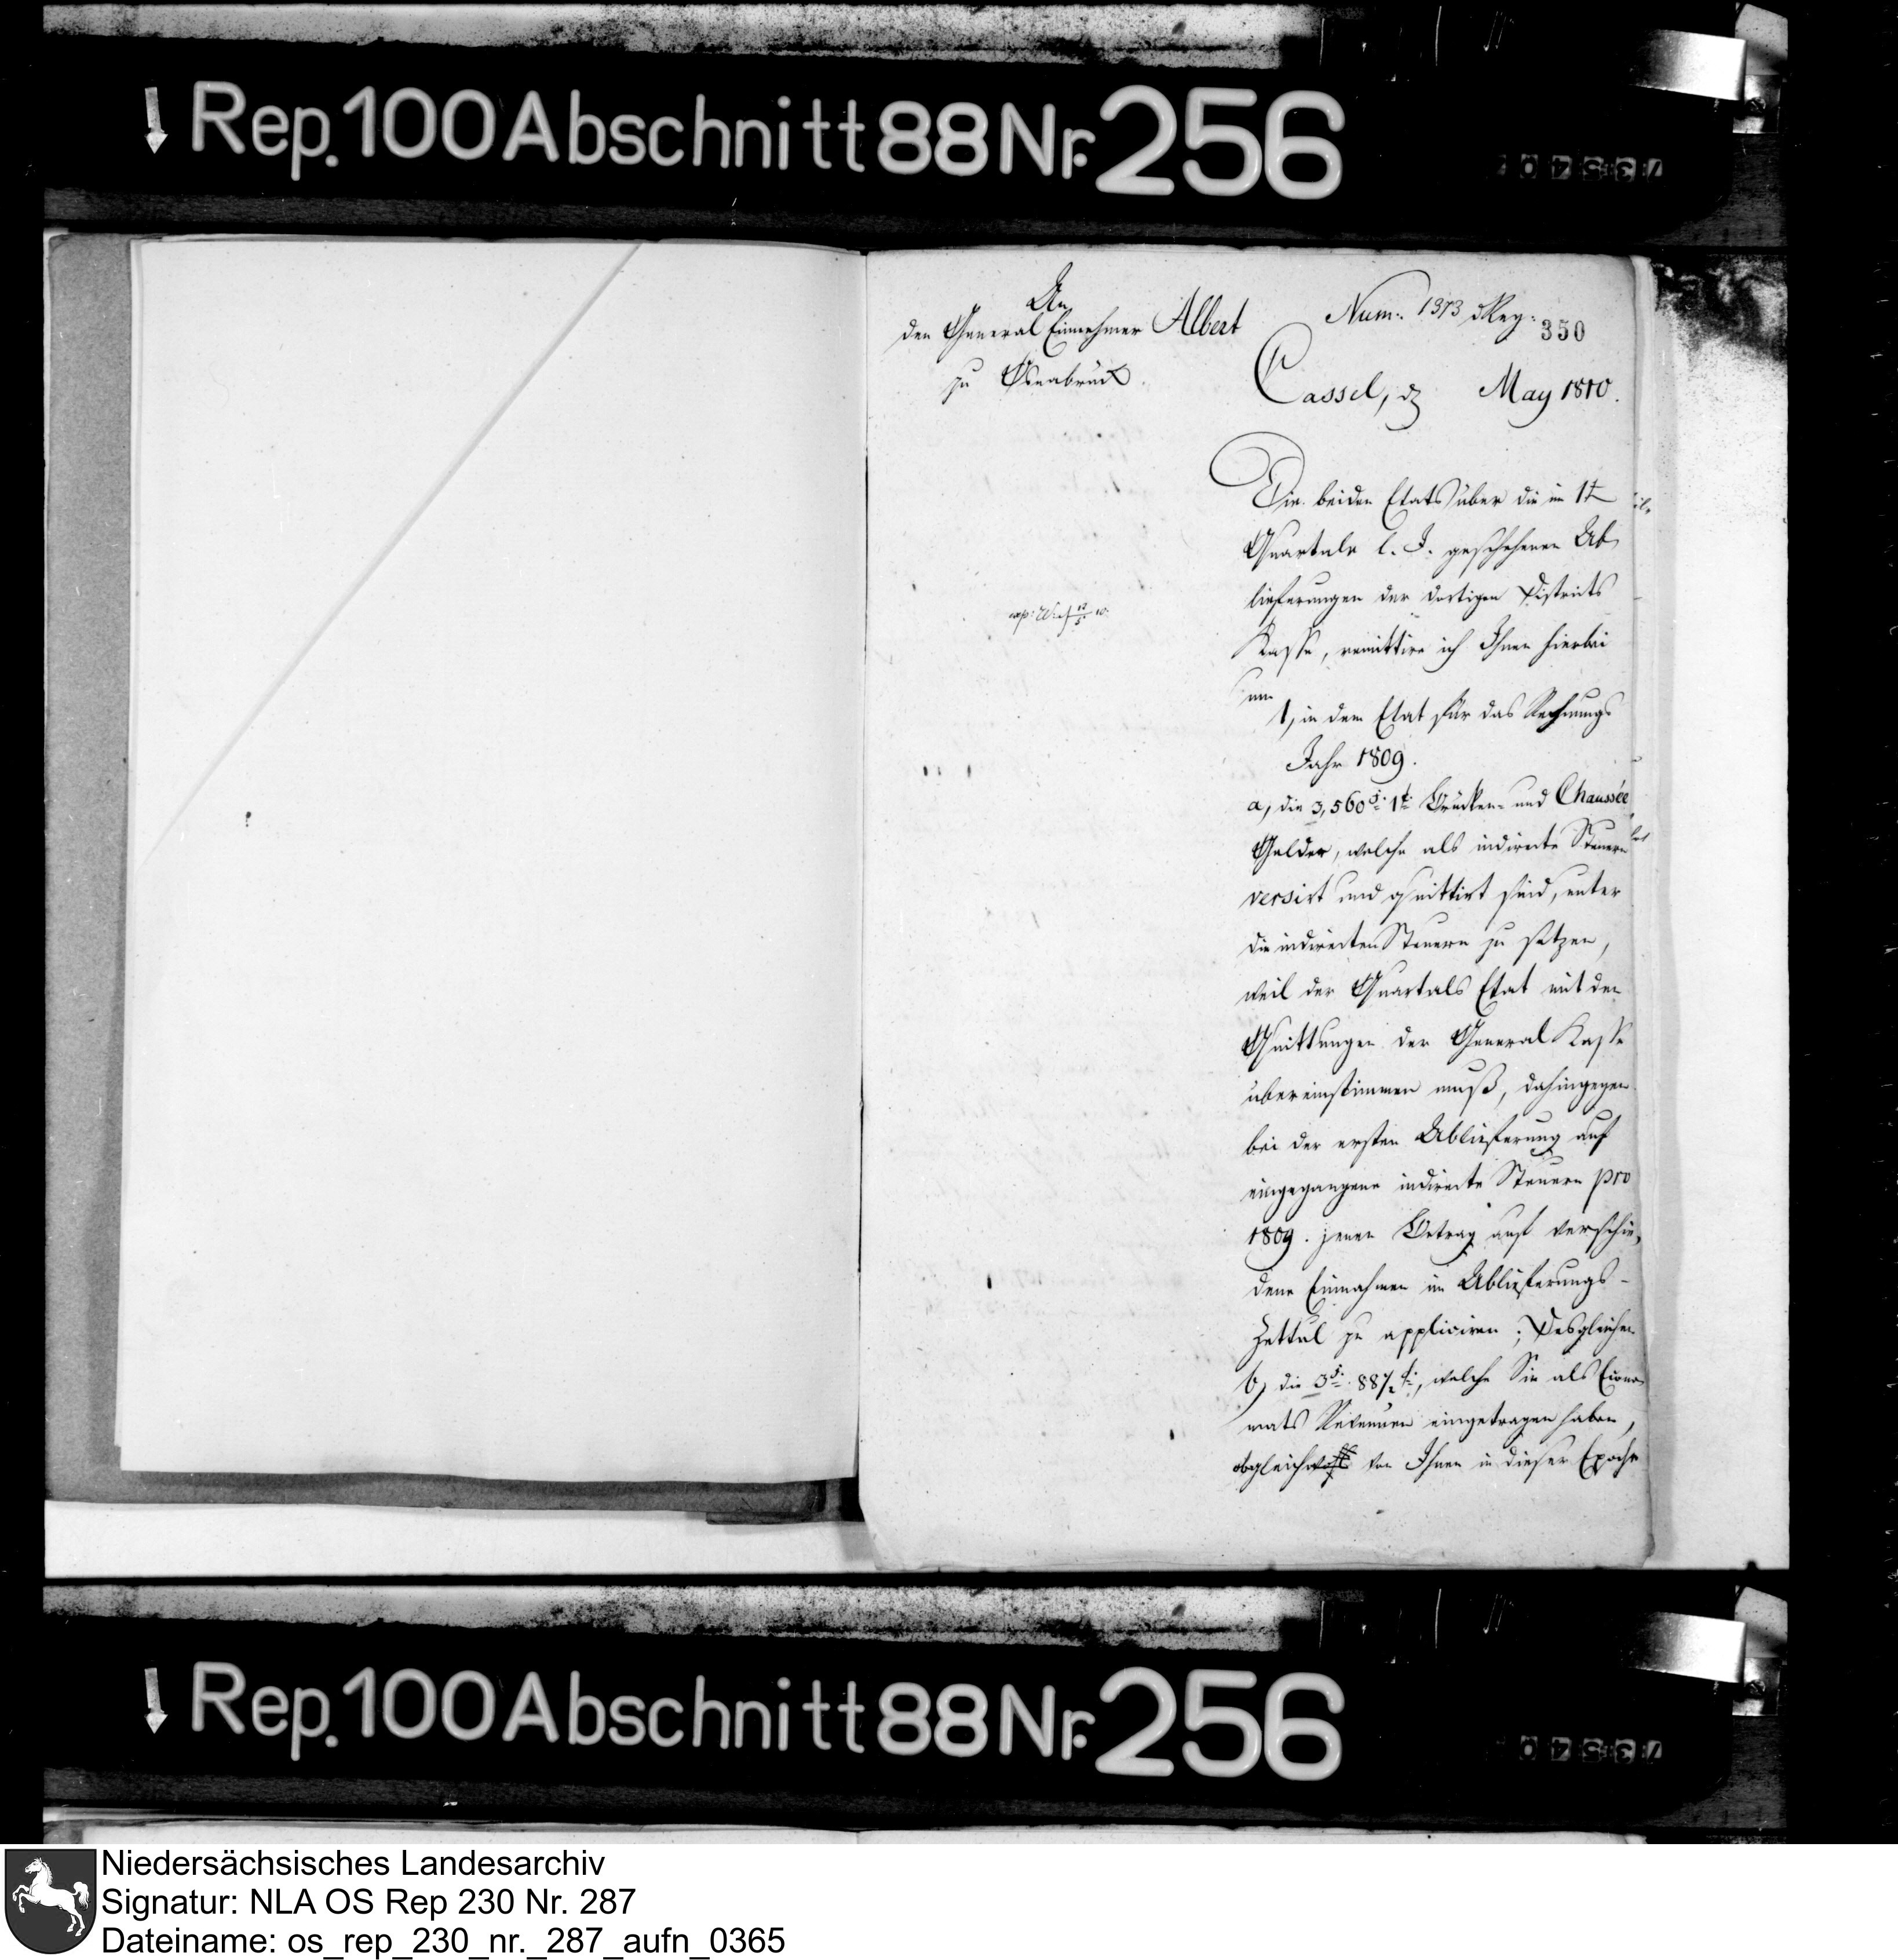 Rep. 100 Abschnitt 88 Nr. 256
73540
An
den General Einnehmer Albert
zu Osnabrück.
Num. 1373 Reg:
350
Cassel, d May 1810.
Die beiden Etats über die im 1t
Quartale l. J. geschehenen Ab-
lieferungen der dortigen Districts
Kasse, remittire ich Ihnen hierbei
um
1, in dem Etat für das Rechnungs
Jahr 1809.
a, die 3,560 1 Brücken- und Chaussée
Gelder, welche als indirecte Steuern
versirt und quittirt sind, unter
die indirecten Steuern zu setzen,
weil der Quartals Etat mit den
Quittungen der General Kasse
übereinstimmen muß, dahingegen
bei der ersten Ablieferung auf
eingegangene indirecte Steuern pro
1809. jenen Betrag auf verschie-
dene Einnahmen im Ablieferungs-
Zettul zu appliciren; Desgleichen
b, die 3 , welche Sie als
mats Revenüen eingetragen haben,
obgleich von Ihnen in dieser Epoche
Rep. 100 Abschnitt 88 Nr. 256
73540
Niedersächsisches Landesarchiv
Signatur: NLA OS Rep 230 Nr. 287
Dateiname: os_rep_230_nr._287_aufn_0365